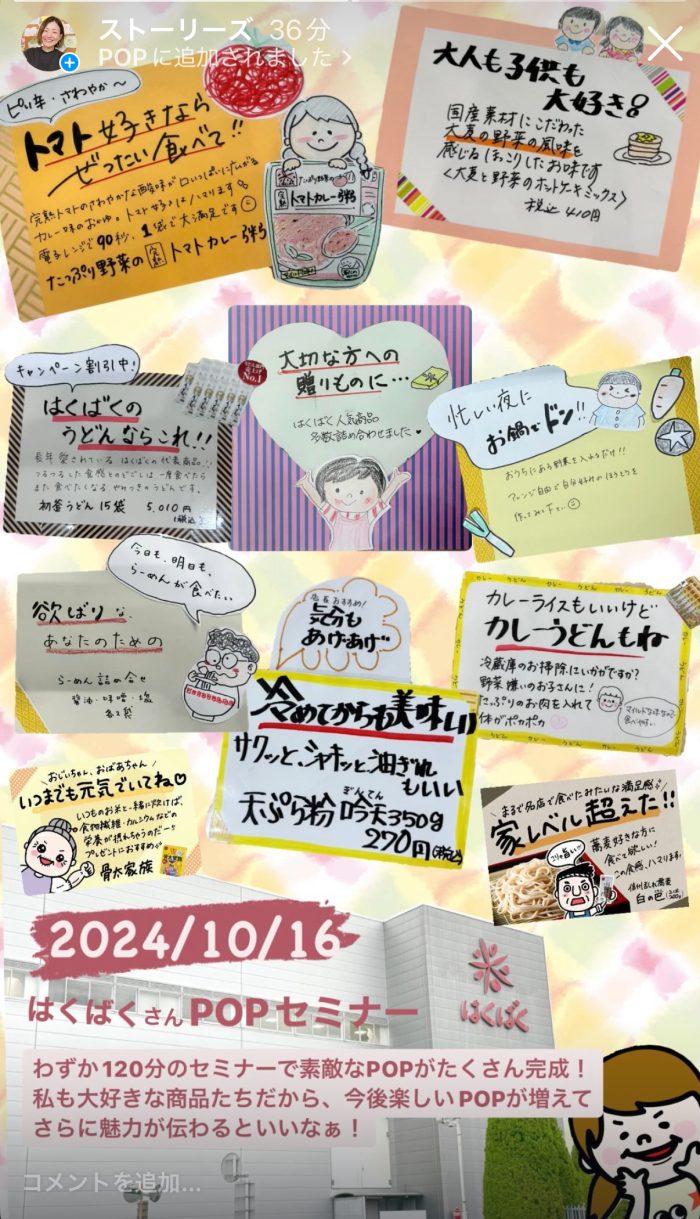 ストーリーズ 36分
POPに追加されました >
ピリ辛・さわやか〜
トマト好きなら
ぜったい食べて!!
完熟トマトのさわやかな酸味が口いっぱいに広がる
カレー味のおかゆ。トマト好きにはハマります
電子レンジで90秒、1袋で大満足です
たっぷり野菜の完熟トマトカレー粥
完熟
トマトカレー粥
大人も子供も
大好き!
国産素材にこだわった
大麦の野菜の風味を
感じるほっこりしたお味です
〈大麦と野菜のホットケーキミックス〉
税込410円
キャンペーン割引中!
はくばくの
うどんならこれ!!
長年愛されている はくばくの代表商品!!
つるつるした食感とのどごしは一度食べたら
また食べたくなる やみつきのうどんです。
初釜うどん 15袋 5,010円
(税込)
No.1
大切な方への
贈りものに…
はくばく人気商品
多数詰め合わせました♥
忙しい夜に
お鍋でドン!!
おうちにある野菜を入れるだけ!!
アレンジ自由で自分好みのほうとうを
作ってみて下さい☺
今日も、明日も、
らーめんが食べたい
欲ばりな、
あなたのための
らーめん詰め合せ
醤油・味噌・塩
各2袋
店長おすすめ!
気分も
あげ・あげ
冷めてからも美味しい
サクッと、シャキッと油ぎれ
もいい
天ぷら粉 吟天350g
ぎんてん
270円(税込)
カレー うどん カレー うどん カレー
カレーライスもいいけど
カレーうどんもね
冷蔵庫のお掃除にいかがですか?
野菜嫌いのお子さんに!
たっぷりのお肉を入れて
体がポカポカ
マイルドな味なので
食べやすい
おじいちゃん、おばあちゃん
いつまでも元気でいてね♡
いつものお米と一緒に炊けば、
食物繊維・カルシウムなどの
栄養が摂れちゃうのだー!!
プレゼントにおすすめ
骨太家族
まるで名店で食べたみたいな満足感
家レベル超えた!!
蕎麦好きな方に
食べて欲しい!
この食感、ハマります。
信州戸隠蕎麦
白の芭
2024/10/16
はくばくさんPOPセミナー
はくばく
わずか120分のセミナーで素敵なPOPがたくさん完成!
私も大好きな商品たちだから、今後楽しいPOPが増えて
さらに魅力が伝わるといいなぁ!
コメントを追加...